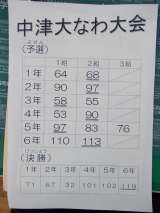 中津大なわ大会
よせん
(予選)
1組 2組 3組
1年 64 68
2年 90 97
3年 58 55
4年 53 90
5年 97 83 76
6年 110 113
けっしょう
(決勝)
1年 2年 3年 4年 5年 6年
71 67 32 101 102 119